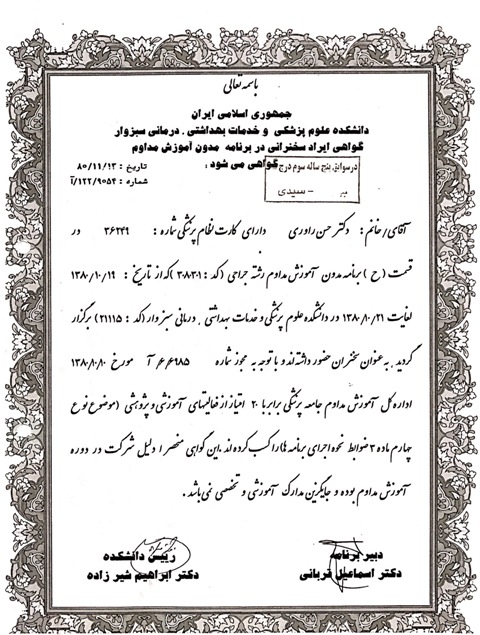 باسمه تعالی
جمهوری اسلامی ایران
دانشکده علوم پزشکی و خدمات بهداشتی ، درمانی سبزوار
گواهی ایراد سخنرانی در برنامه مدون آموزش مداوم
گواهی می شود :
تاریخ : ۸۰/۱۱/۱۳
شماره : ۱۲۲/۹۰۵۴/آ
در سوابق پنج ساله سوم درج
سیدی
آقای/خانم : دکتر حسن راوری دارای کارت نظام پزشکی شماره : ۳۶۲۴۹ در
قسمت (ح) برنامه مدون آموزش مداوم رشته جراحی (کد : ۳۰۸۳۰۱) که از تاریخ : ۱۳۸۰/۱۰/۱۹
لغایت ۱۳۸۰/۱۰/۲۱ در دانشکده علوم پزشکی و خدمات بهداشتی ، درمانی سبزوار (کد : ۲۱۱۱۵) برگزار
گردید ، به عنوان سخنران حضور داشته اند و با توجه به مجوز شماره ۶/۶۹۸۵/آ مورخ ۱۳۸۰/۸/۱۰
اداره کل آموزش مداوم جامعه پزشکی برابر با ۲۰ امتیاز از فعالیتهای آموزشی و پژوهشی (موضوع نوع
چهارم ماده ۳ ضوابط نحوه اجرای برنامه ها) را کسب کرده اند . این گواهی منحصرا دلیل شرکت در دوره
آموزش مداوم بوده و جایگزین مدارک آموزشی و تخصصی نمی باشد .
دبیر برنامه
دکتر اسماعیل قربانی
رئیس دانشکده
دکتر ابراهیم شیر زاده